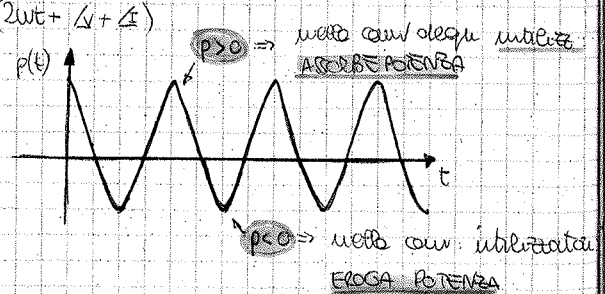 2wt + ∠V + ∠I)
p(t)
p>0 => nella conv degli utilizz
ASSORBE POTENZA
t
p<0 => nella conv. utilizzatori
EROGA POTENZA